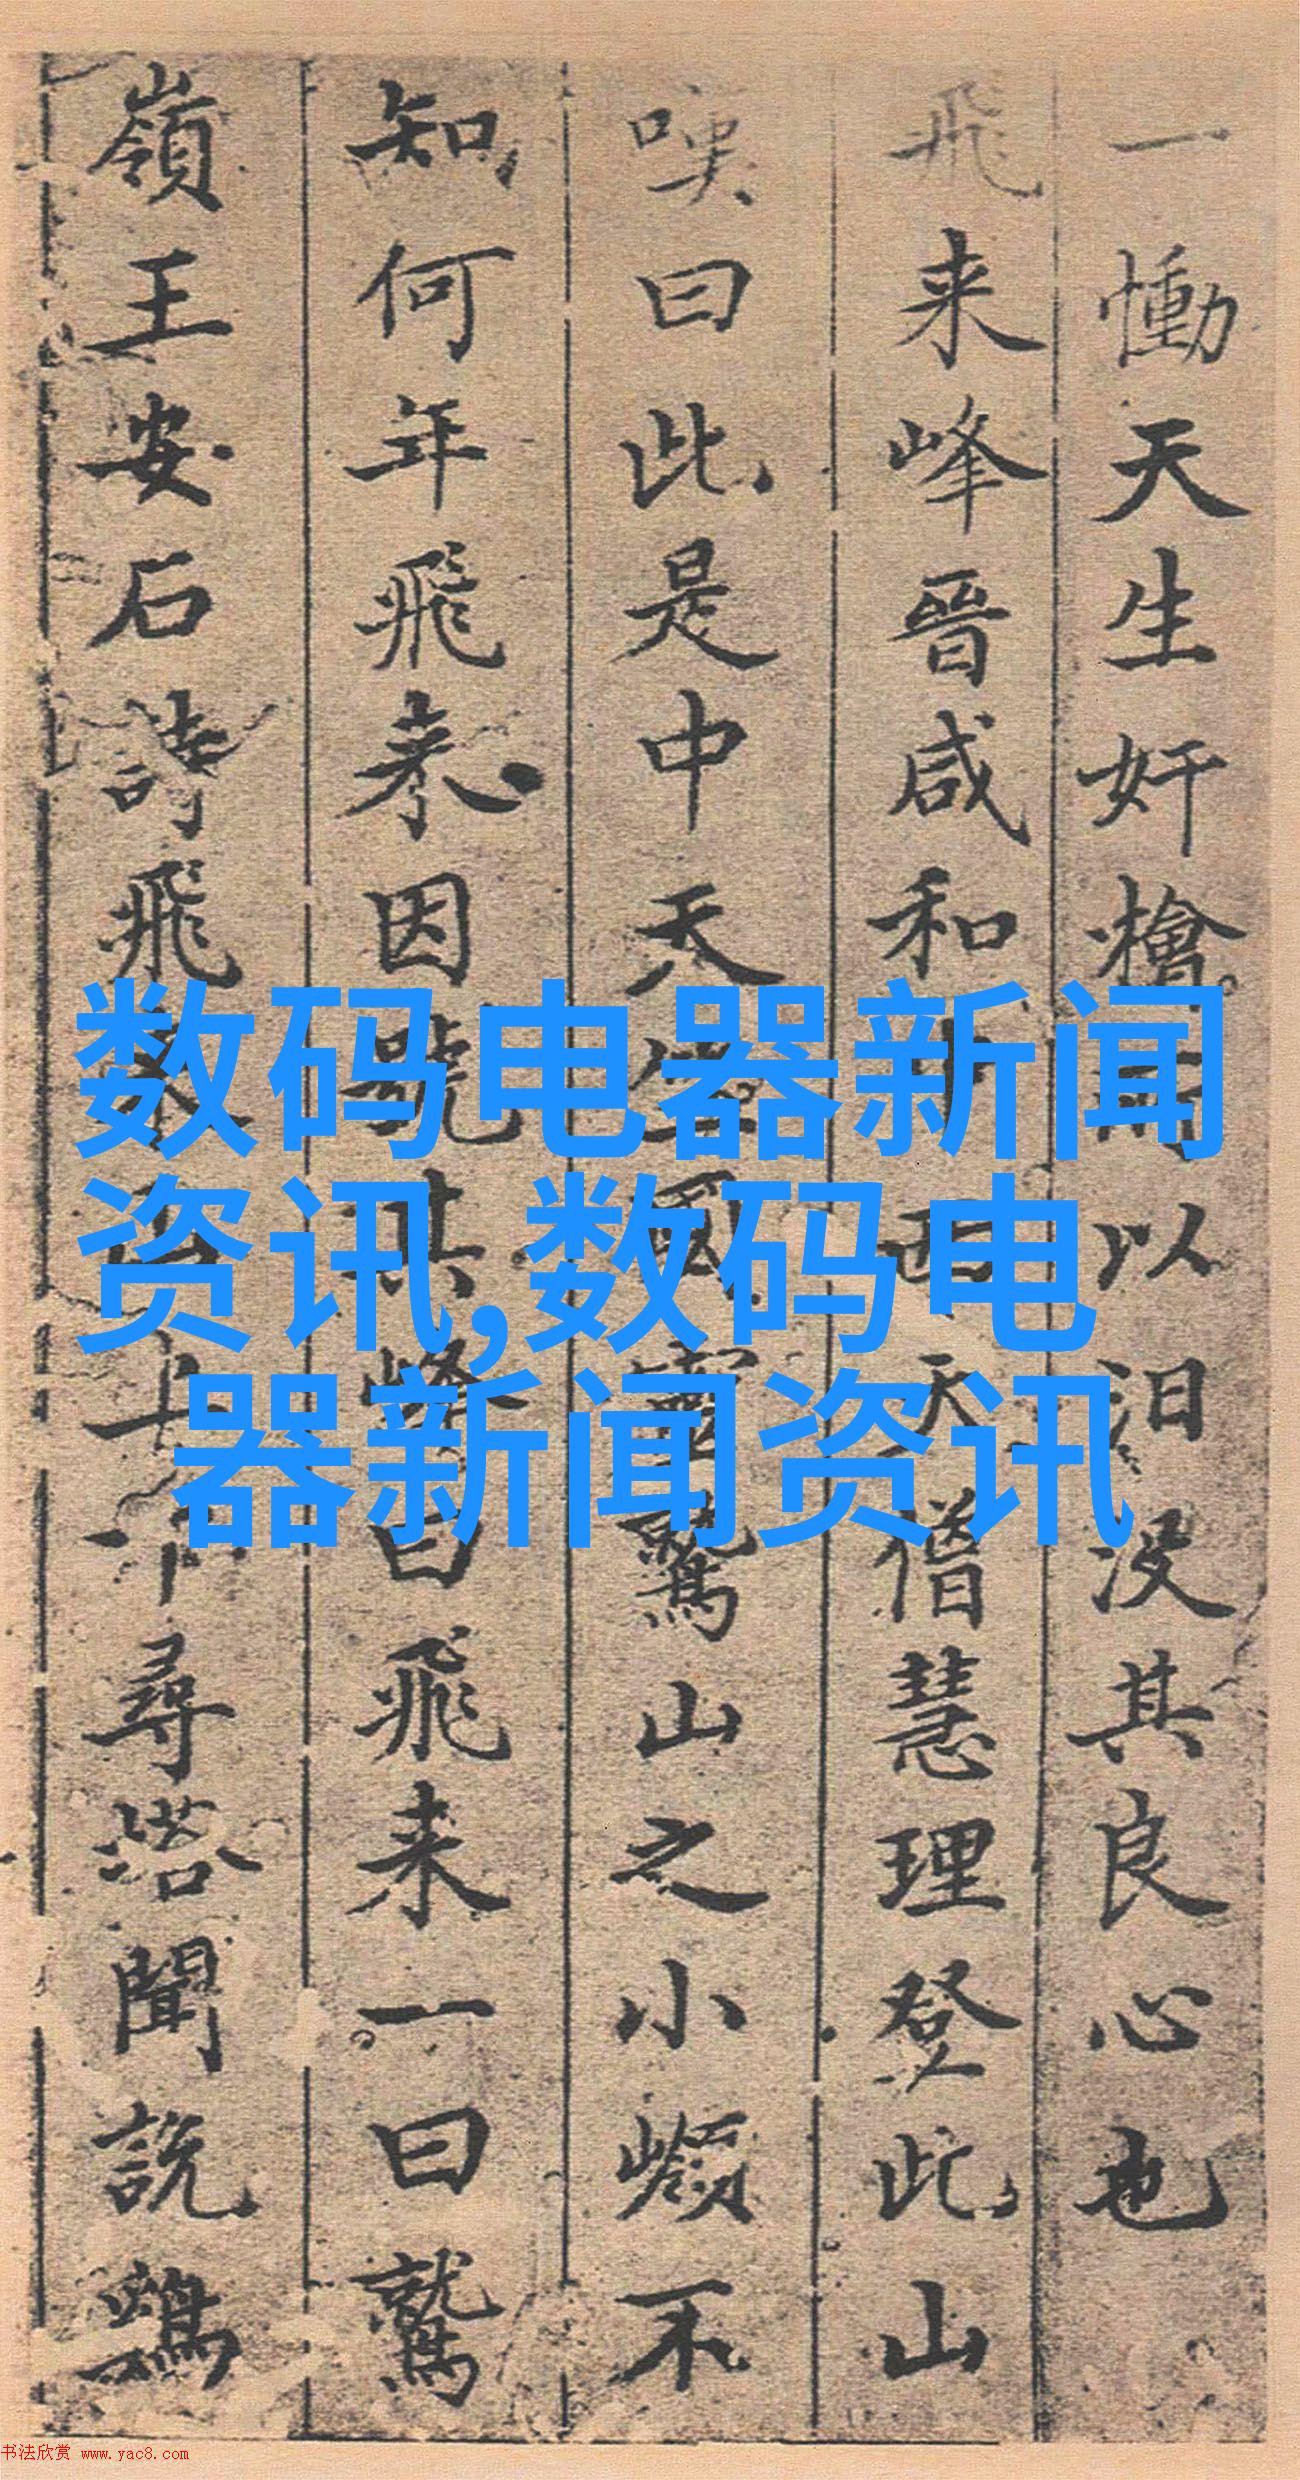 一慟天生奸檜以汨没其良心也
飛来峰晉咸和西天僧慧理登此山
嘆曰此是中天竺國靈鷲山之小嶺不
知何年飛来因號其峰曰飛来一曰鷲
嶺王安石詩飛来山上千尋塔聞說鷄
数码电器新闻
资讯,数码电
器新闻资讯
书法欣赏 www.yac8.com